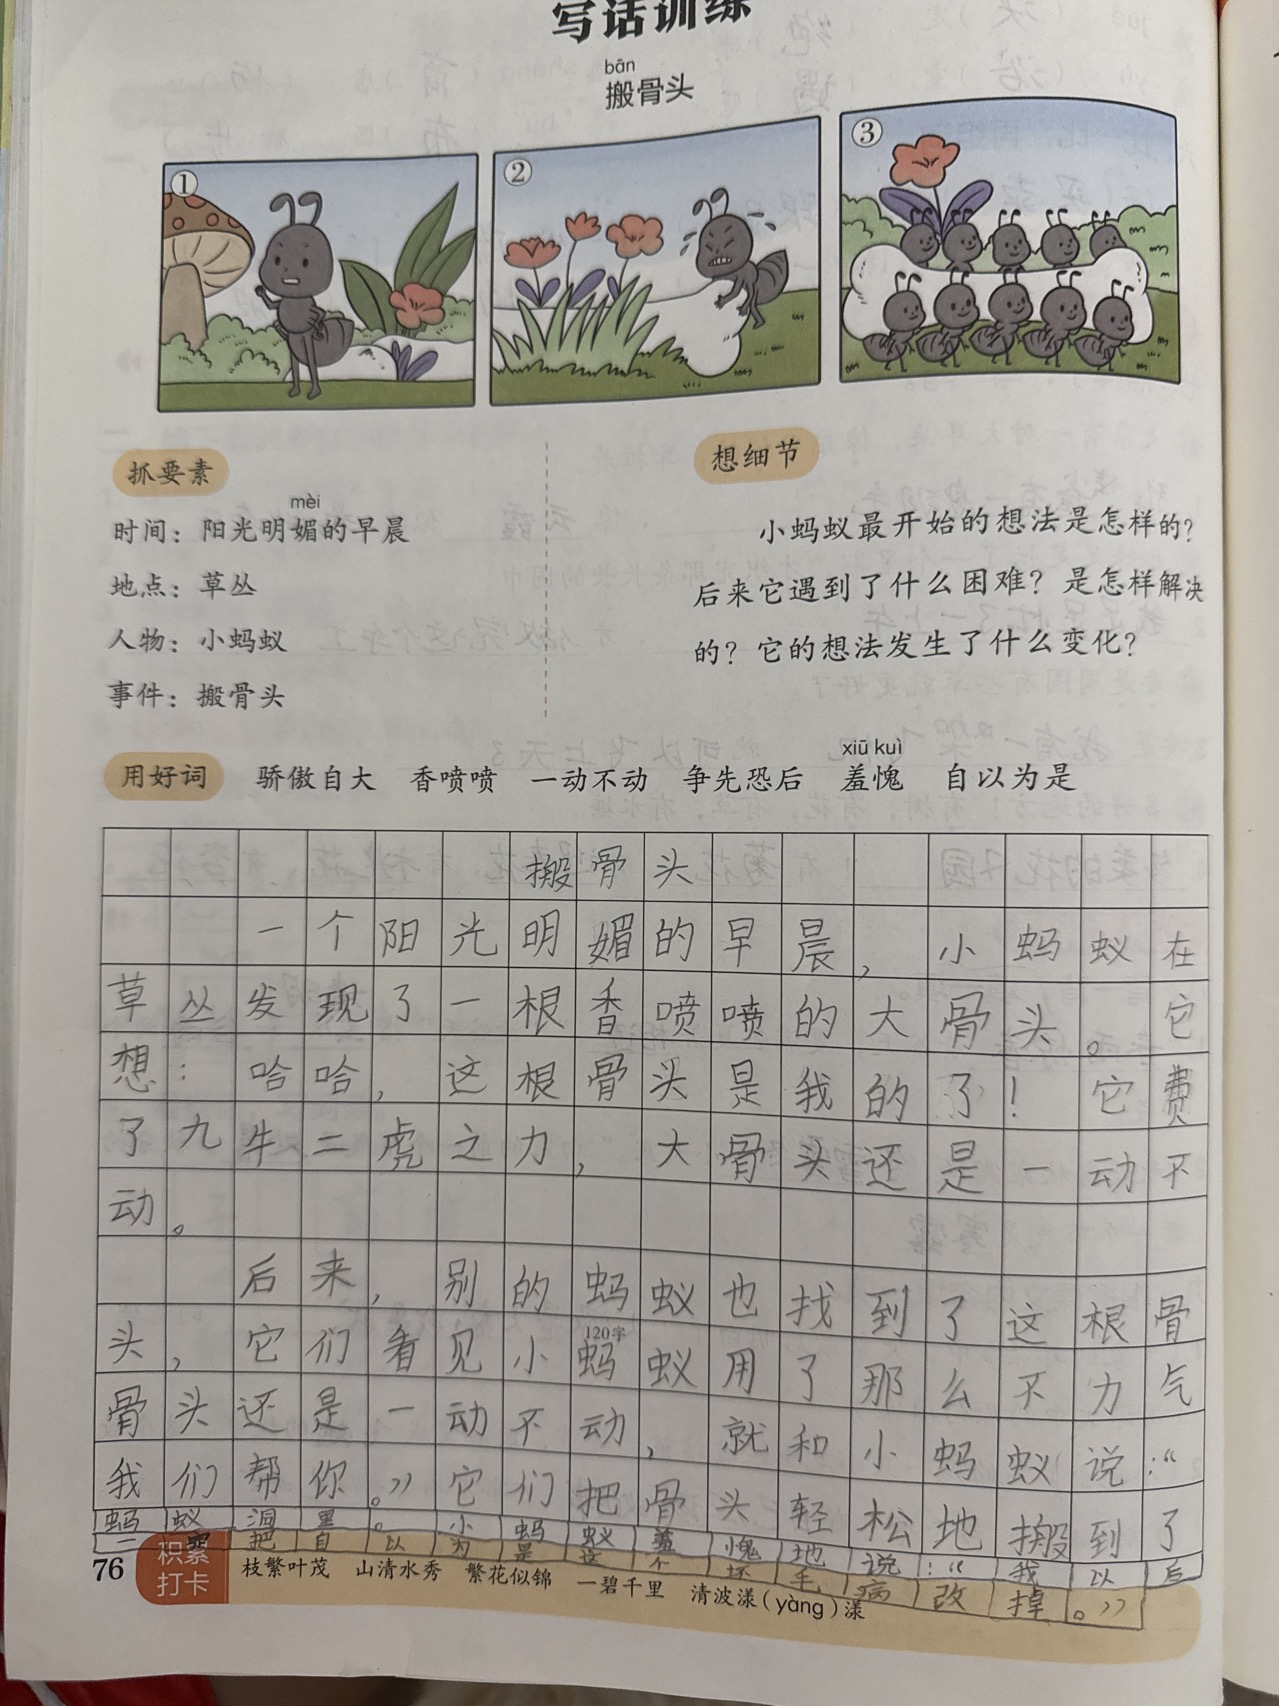 写话训练
bān
搬骨头
①
②
③
抓要素
mèi
时间：阳光明媚的早晨
地点：草丛
人物：小蚂蚁
事件：搬骨头
想细节
小蚂蚁最开始的想法是怎样的？
后来它遇到了什么困难？是怎样解决
的？它的想法发生了什么变化？
xiū kuì
用好词 骄傲自大 香喷喷 一动不动 争先恐后 羞愧 自以为是
搬骨头
一个阳光明媚的早晨，小蚂蚁在
草丛发现了一根香喷喷的大骨头。它
想：哈哈，这根骨头是我的了！它费
了九牛二虎之力，大骨头还是一动不
动。
后来，别的蚂蚁也找到了这根骨
头，它们看见小蚂蚁用了那么不力气
120字
骨头还是一动不动，就和小蚂蚁说：“
我们帮你。”它们把骨头轻松地搬到了
蚂蚁洞里。小蚂蚁羞愧地说：“我以后
一定把自以为是这个坏毛病改掉。”
76
积累
打卡
枝繁叶茂 山清水秀 繁花似锦 一碧千里 清波漾(yàng)漾